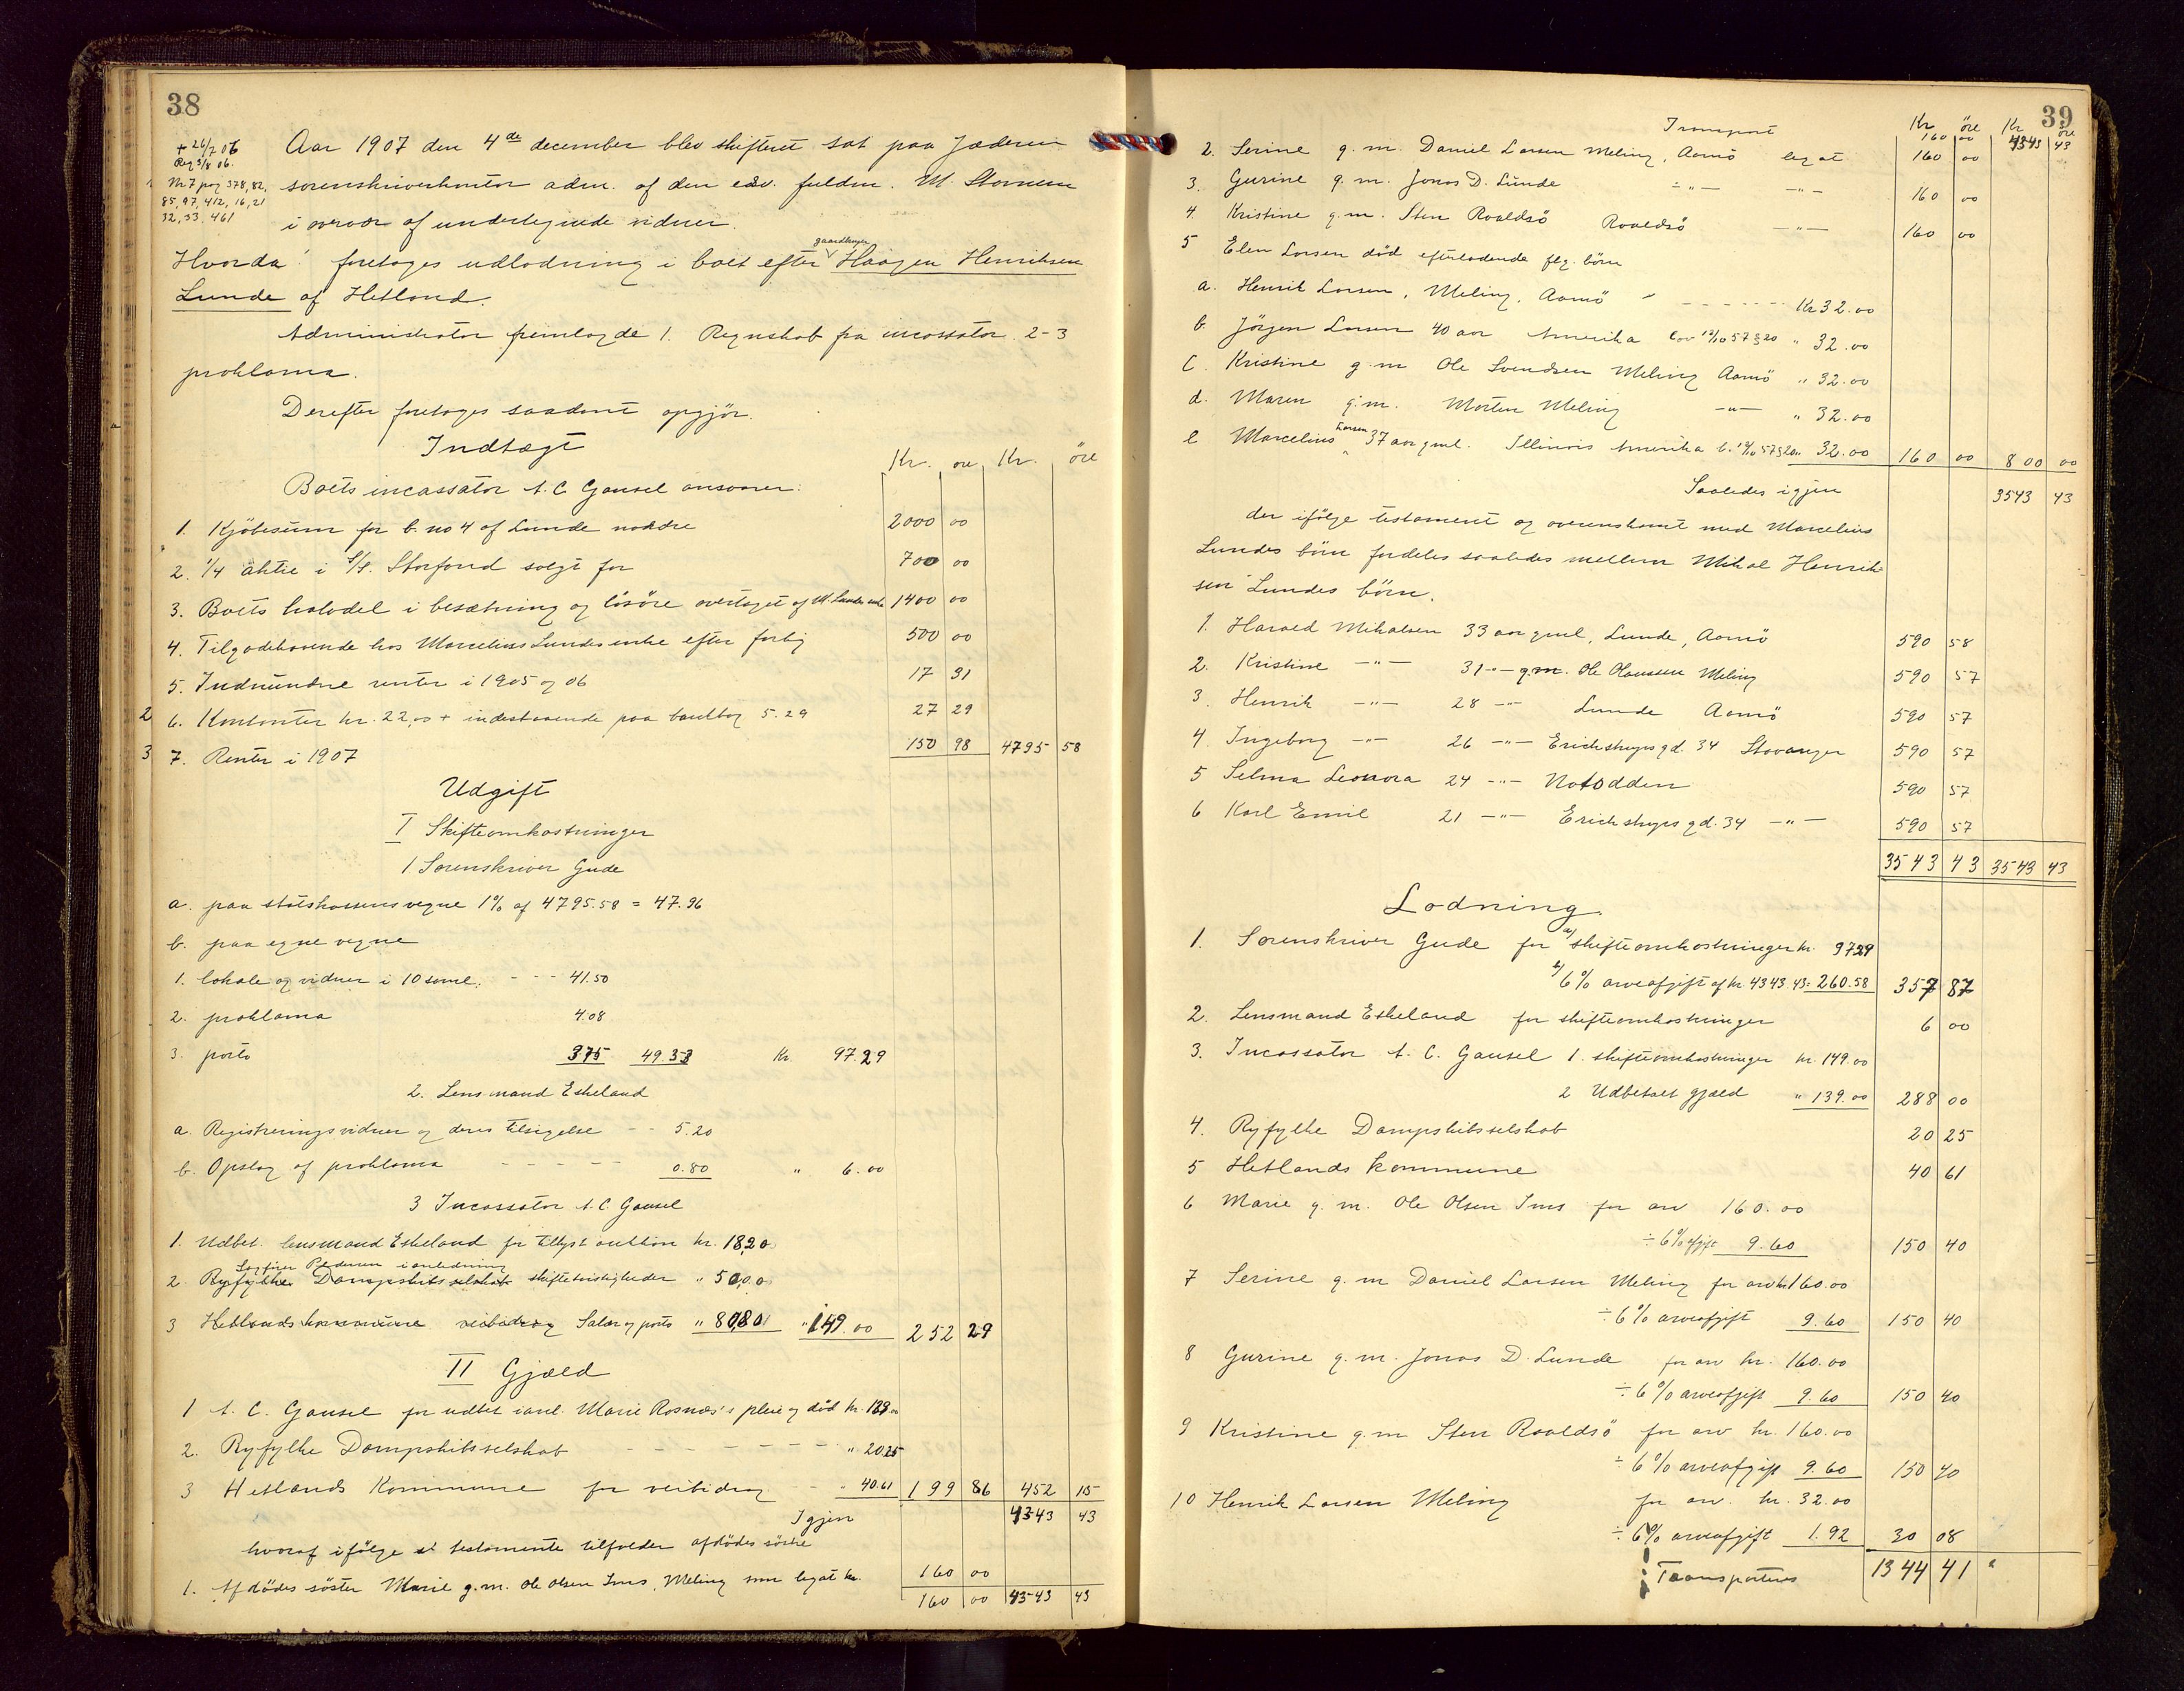 38
+ 26/7 06
Reg 3/8 06.
Nr 7 pag 378, 82,
85, 97, 412, 16, 21
32, 33. 461
Aar 1907 den 4de december blev skifteret sat paa Jæderen
sorenskriverkontor adm. af den edsv. fuldm. M. Stornem
i overvær af undertegnede vidner.
Hvorda: foretoges udlodning i boet efter gaardbruger Haagen Henriksen
Lunde af Hetland.
Administrator fremlagde 1. Regnskab fra incassator. 2-3
proklama.
Derefter foretoges saadant opgjør.
Indtægt
Kr. öre Kr. öre
Boets incassator A. C. Gausel ansvarer:
1. Kjöbesum for b. no 4 af Lunde nordre 2000 00
2. 1/4 aktie i S/S. Storfond solgt for 700 00
3. Boets halvdel i besætning og lösöre overtaget af M. Lundes enke 1400 00
4. Tilgodehavende hos Marcelius Lundes enke efter forlig 500 00
5. Indvundne renter i 1905 og 06 17 31
2 6. Kontanter kr. 22,00 + indestaaende paa bankbog 5.29 27 29
3 7. Renter i 1907 150 98 4795 58
Udgift
I Skifteomkostninger
1. Sorenskriver Gude
a. paa statskassens vegne 1% af 4795.58 = 47.96
b. paa egne vegne
1. lokale og vidner i 10 saml. - - - 41.50
2. proklama 4.08
3. porto 3.75 49.33 Kr. 97.29
2. Lensmand Eskeland
a. Registreringsvidner og deres tilsigelse - - 5.20
b. Opslag af proklama - - - - - 0.80 " 6.00
3 Incassator A. C. Gausel
1. Udbet. lensmand Eskeland for tillyst auktion kr. 18,20
Sagfører Pedersen i anledning
2. Ryfylke Dampskibsselskab skifteteistigheder " 50,00
3 Hetlands kommune veibidrag Salær og porto " 80,80 " 149.00 252 29
II Gjæld
1 A. C. Gausel for udbet. i anl. Marie Rosnæs's pleie og død kr. 139.00
2. Ryfylke Dampskibsselskab - - - - - - - " 20.25
3 Hetlands Kommune for veibidrag - - " 40.61 199 86 452 15
Igjen 4343 43
hvoraf ifölge testamente tilfalder afdødes søstre
1. Afdødes söster Marie g.m. Ole Olsen Ims, Meling som legat kr. 160 00
160 00 4343 43
39
Kr öre Kr öre
Transport 160 00 4343 43
2. Serine g. m. Daniel Larsen Meling, Aamö legat 160 00
3. Gurine g. m. Jonas D. Lunde - " - - " - 160 00
4. Kristine g. m. Sten Roaldsö Roaldsö - " - 160 00
5 Elen Larsen død efterladende flg. börn
a. Henrik Larsen, Meling, Aamö " - - - - - - Kr 32.00
b. Jörgen Larsen 40 aar Amerika Lov 12/10 57 § 20 " 32.00
c. Kristine g. m Ole Svendsen Meling Aamö " 32.00
d. Maren g. m. Morten Meling - " - " 32.00
e Marcelius Larsen 37 aar gml. Illinois Amerika l. 12/10 57 § 20 " 32.00 160 00 800 00
Saaledes igjen 3543 43
der ifölge testament og overenskomst med Marcelius
Lundes börn fordeles saaledes mellem Mikal Henrik-
sen Lundes börn.
1. Harald Mikalsen 33 aar gml, Lunde, Aamö 590 58
2. Kristine - " - 31 - " - g.m. Ole Olaussen Meling 590 57
3. Henrik - " - 28 - " - Lunde Aamö 590 57
4. Ingeborg - " - 26 - " - Erichstrups gd. 34 Stavanger 590 57
5 Selma Leonora 24 - " - Notodden 590 57
6 Karl Emil 21 - " - Erichstrups gd. 34 - " - 590 57
3543 43 3543 43
Lodning.
1. Sorenskriver Gude for a/ skifteomkostninger kr. 97.29
b/ 6% arveafgift af kr. 4343.43 = 260.58 357 87
2. Lensmand Eskeland for skifteomkostninger 6 00
3. Incassator A. C. Gausel 1. skifteomkostninger kr. 149.00
2 Udbetalt gjæld " 139.00 288 00
4. Ryfylke Dampskibsselskab 20 25
5 Hetlands kommune 40 61
6 Marie g. m. Ole Olsen Ims for arv 160.00
÷ 6% afgift 9.60 150 40
7 Serine g. m Daniel Larsen Meling for arv kr 160.00
÷ 6% arveafgift 9.60 150 40
8 Gurine g. m. Jonas D. Lunde for arv kr. 160.00
÷ 6% arveafgift 9.60 150 40
9 Kristine g. m Sten Roaldsö for arv kr. 160.00
÷ 6% arveafgift 9.60 150 40
10 Henrik Larsen Meling for arv. kr. 32.00
÷ 6% arveafgift 1.92 30 08
Transporteres 1344 41